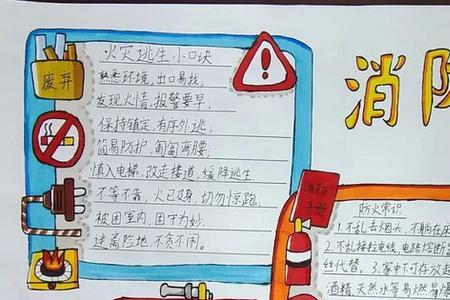 火灾逃生小口诀
熟悉环境，出口易找，
发现火情，报警要早，
保持镇定，有序外逃，
简易防护，匍匐弯腰，
慎入电梯，改走楼道，缓降逃生
不等不靠，火已及身，切勿惊跑
被困室内，固守为妙
速离险地，不贪不闹。
废弃
消防
消防
手册
防火常识
1.不乱丢烟头，不躺在床
2.不乱接拉电线，电路熔断
丝代替。3.家中不可存放超
酒精，天然水等易燃易爆